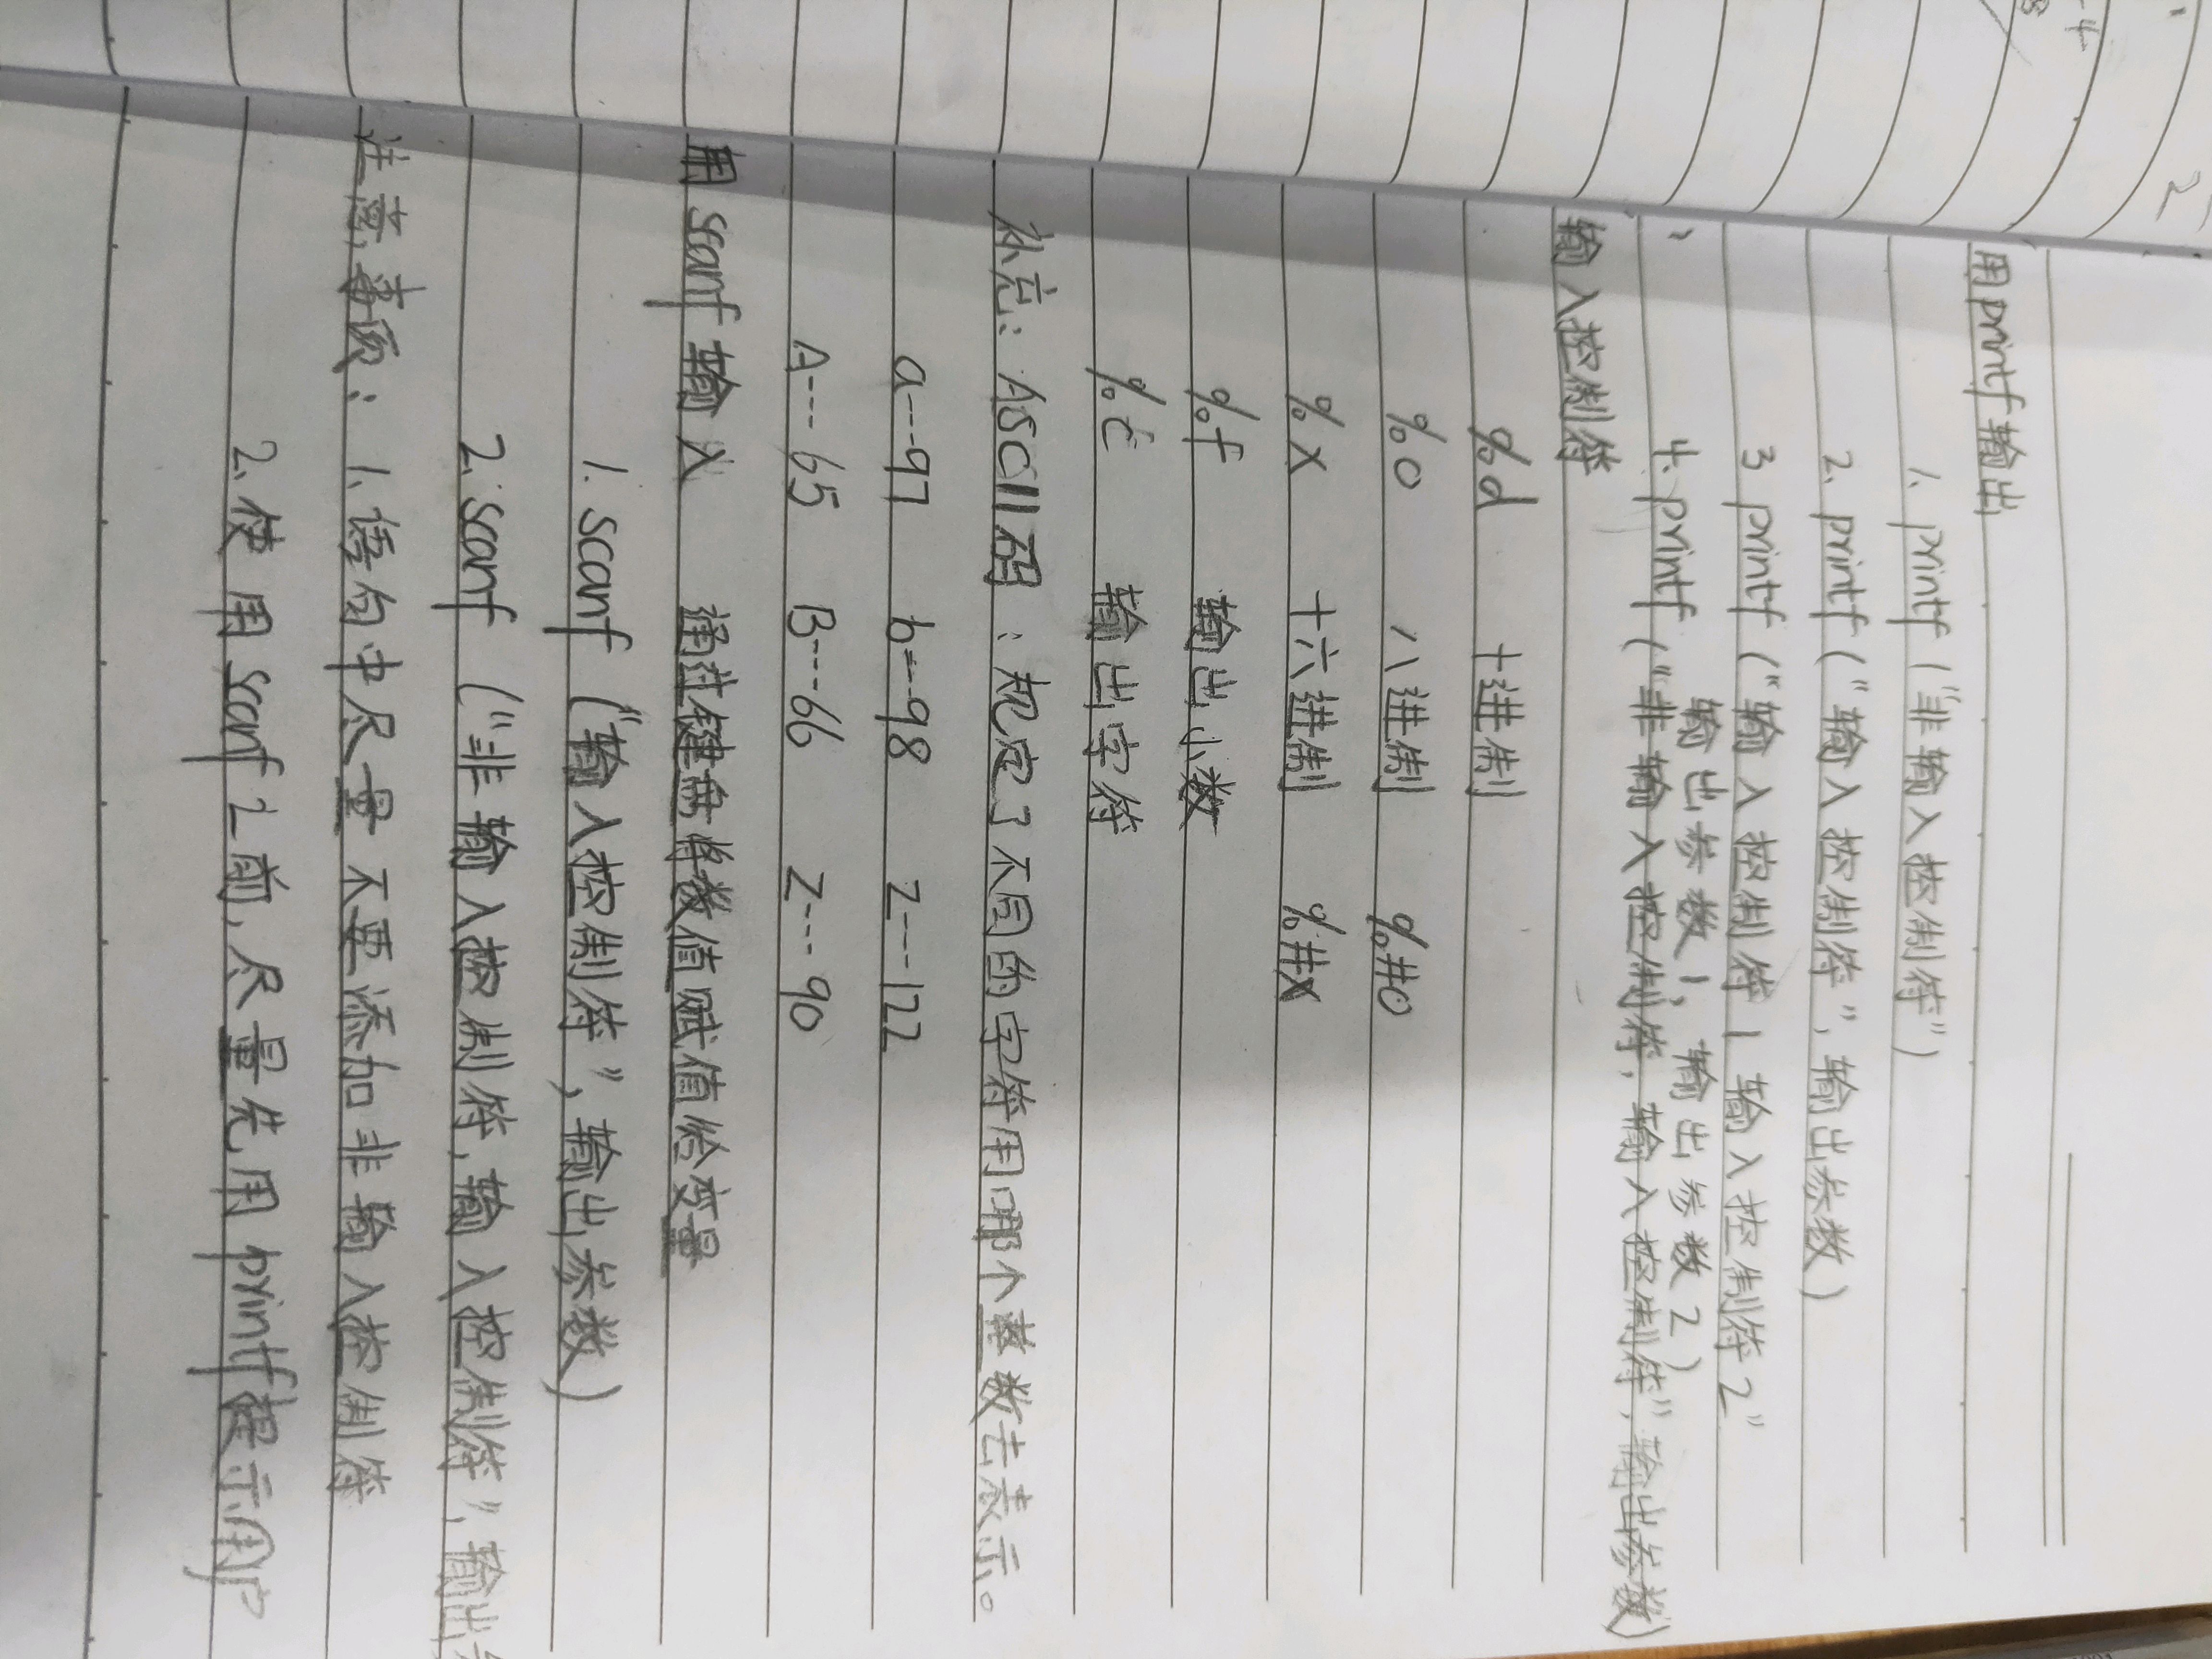 用printf输出
1、printf（“非输入控制符”）
2、printf（“输入控制符”，输出参数）
3 printf（“输入控制符1 输入控制符2”
输出参数1，输出参数2）
4、printf（“非输入控制符，输入控制符”，输出参数）
输入控制符
%d 十进制
%o 八进制 %#o
%x 十六进制 %#x
%f 输出小数
%c 输出字符
补充：ASCII码：规定了不同的字符用哪个整数去表示。
a--97 b---98 z---122
A---65 B---66 Z---90
用scanf输入 通过键盘将数值赋值给变量
1. scanf（“输入控制符”，输出参数）
2. scanf（“非输入控制符，输入控制符”，输出
注意事项：1、语句中尽量不要添加非输入控制符
2、使用scanf之前，尽量先用printf提示用户